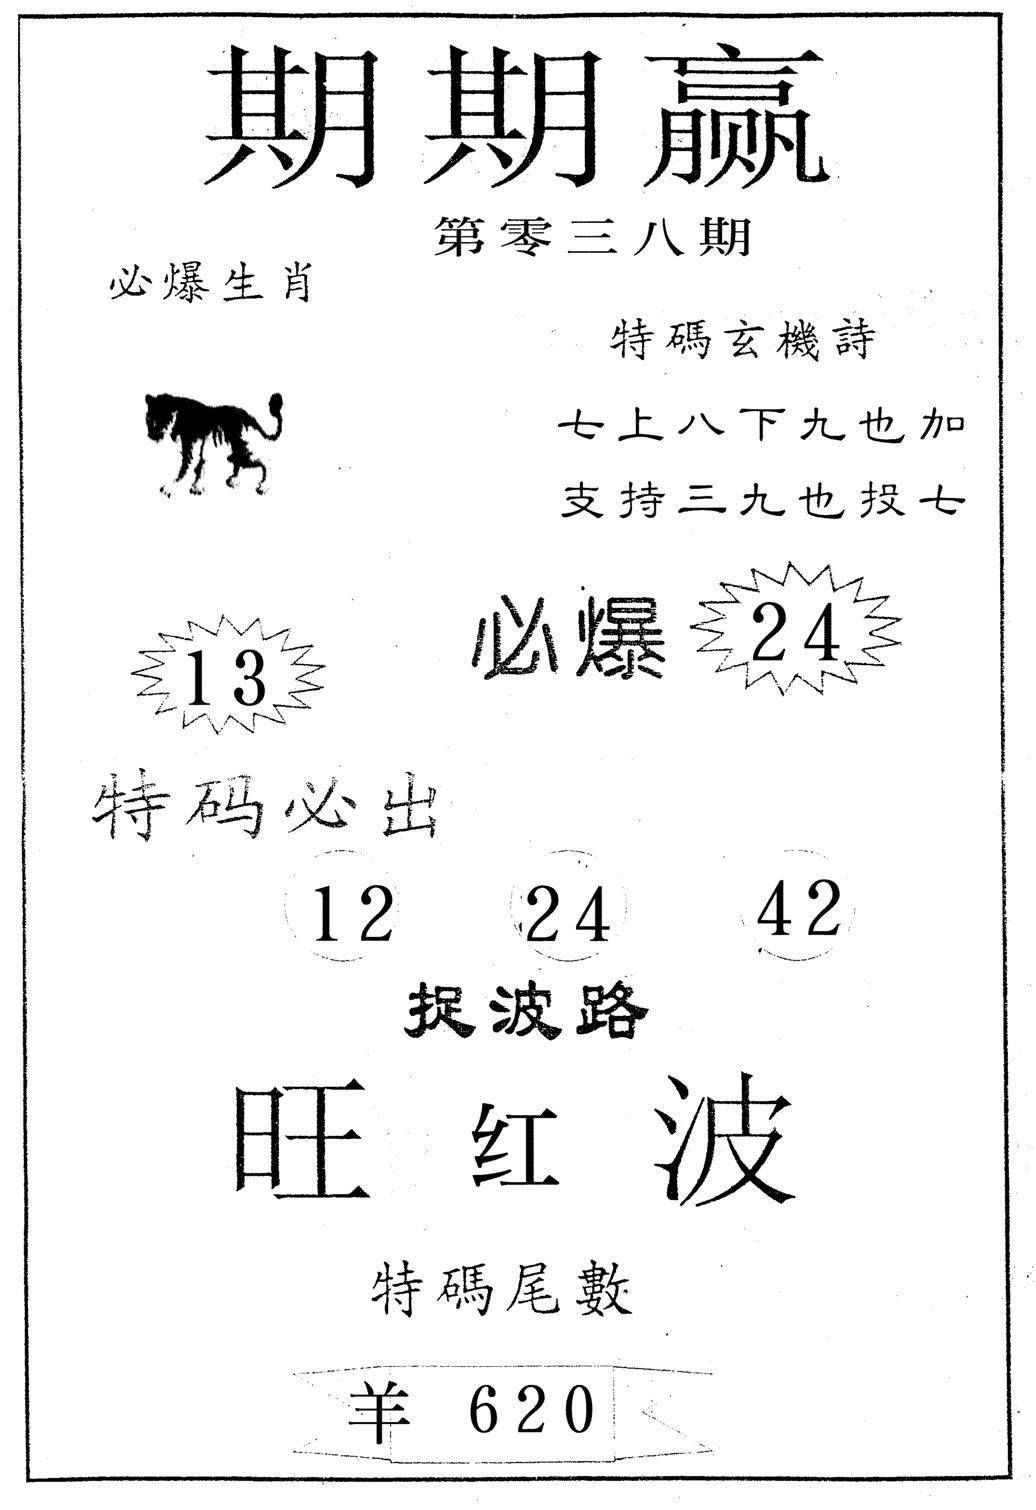 期期赢
第零三八期
必爆生肖
特碼玄機詩
七上八下九也加
支持三九也投七
必爆 24
13
特码必出
12 24 42
捉波路
旺红波
特碼尾數
羊 620